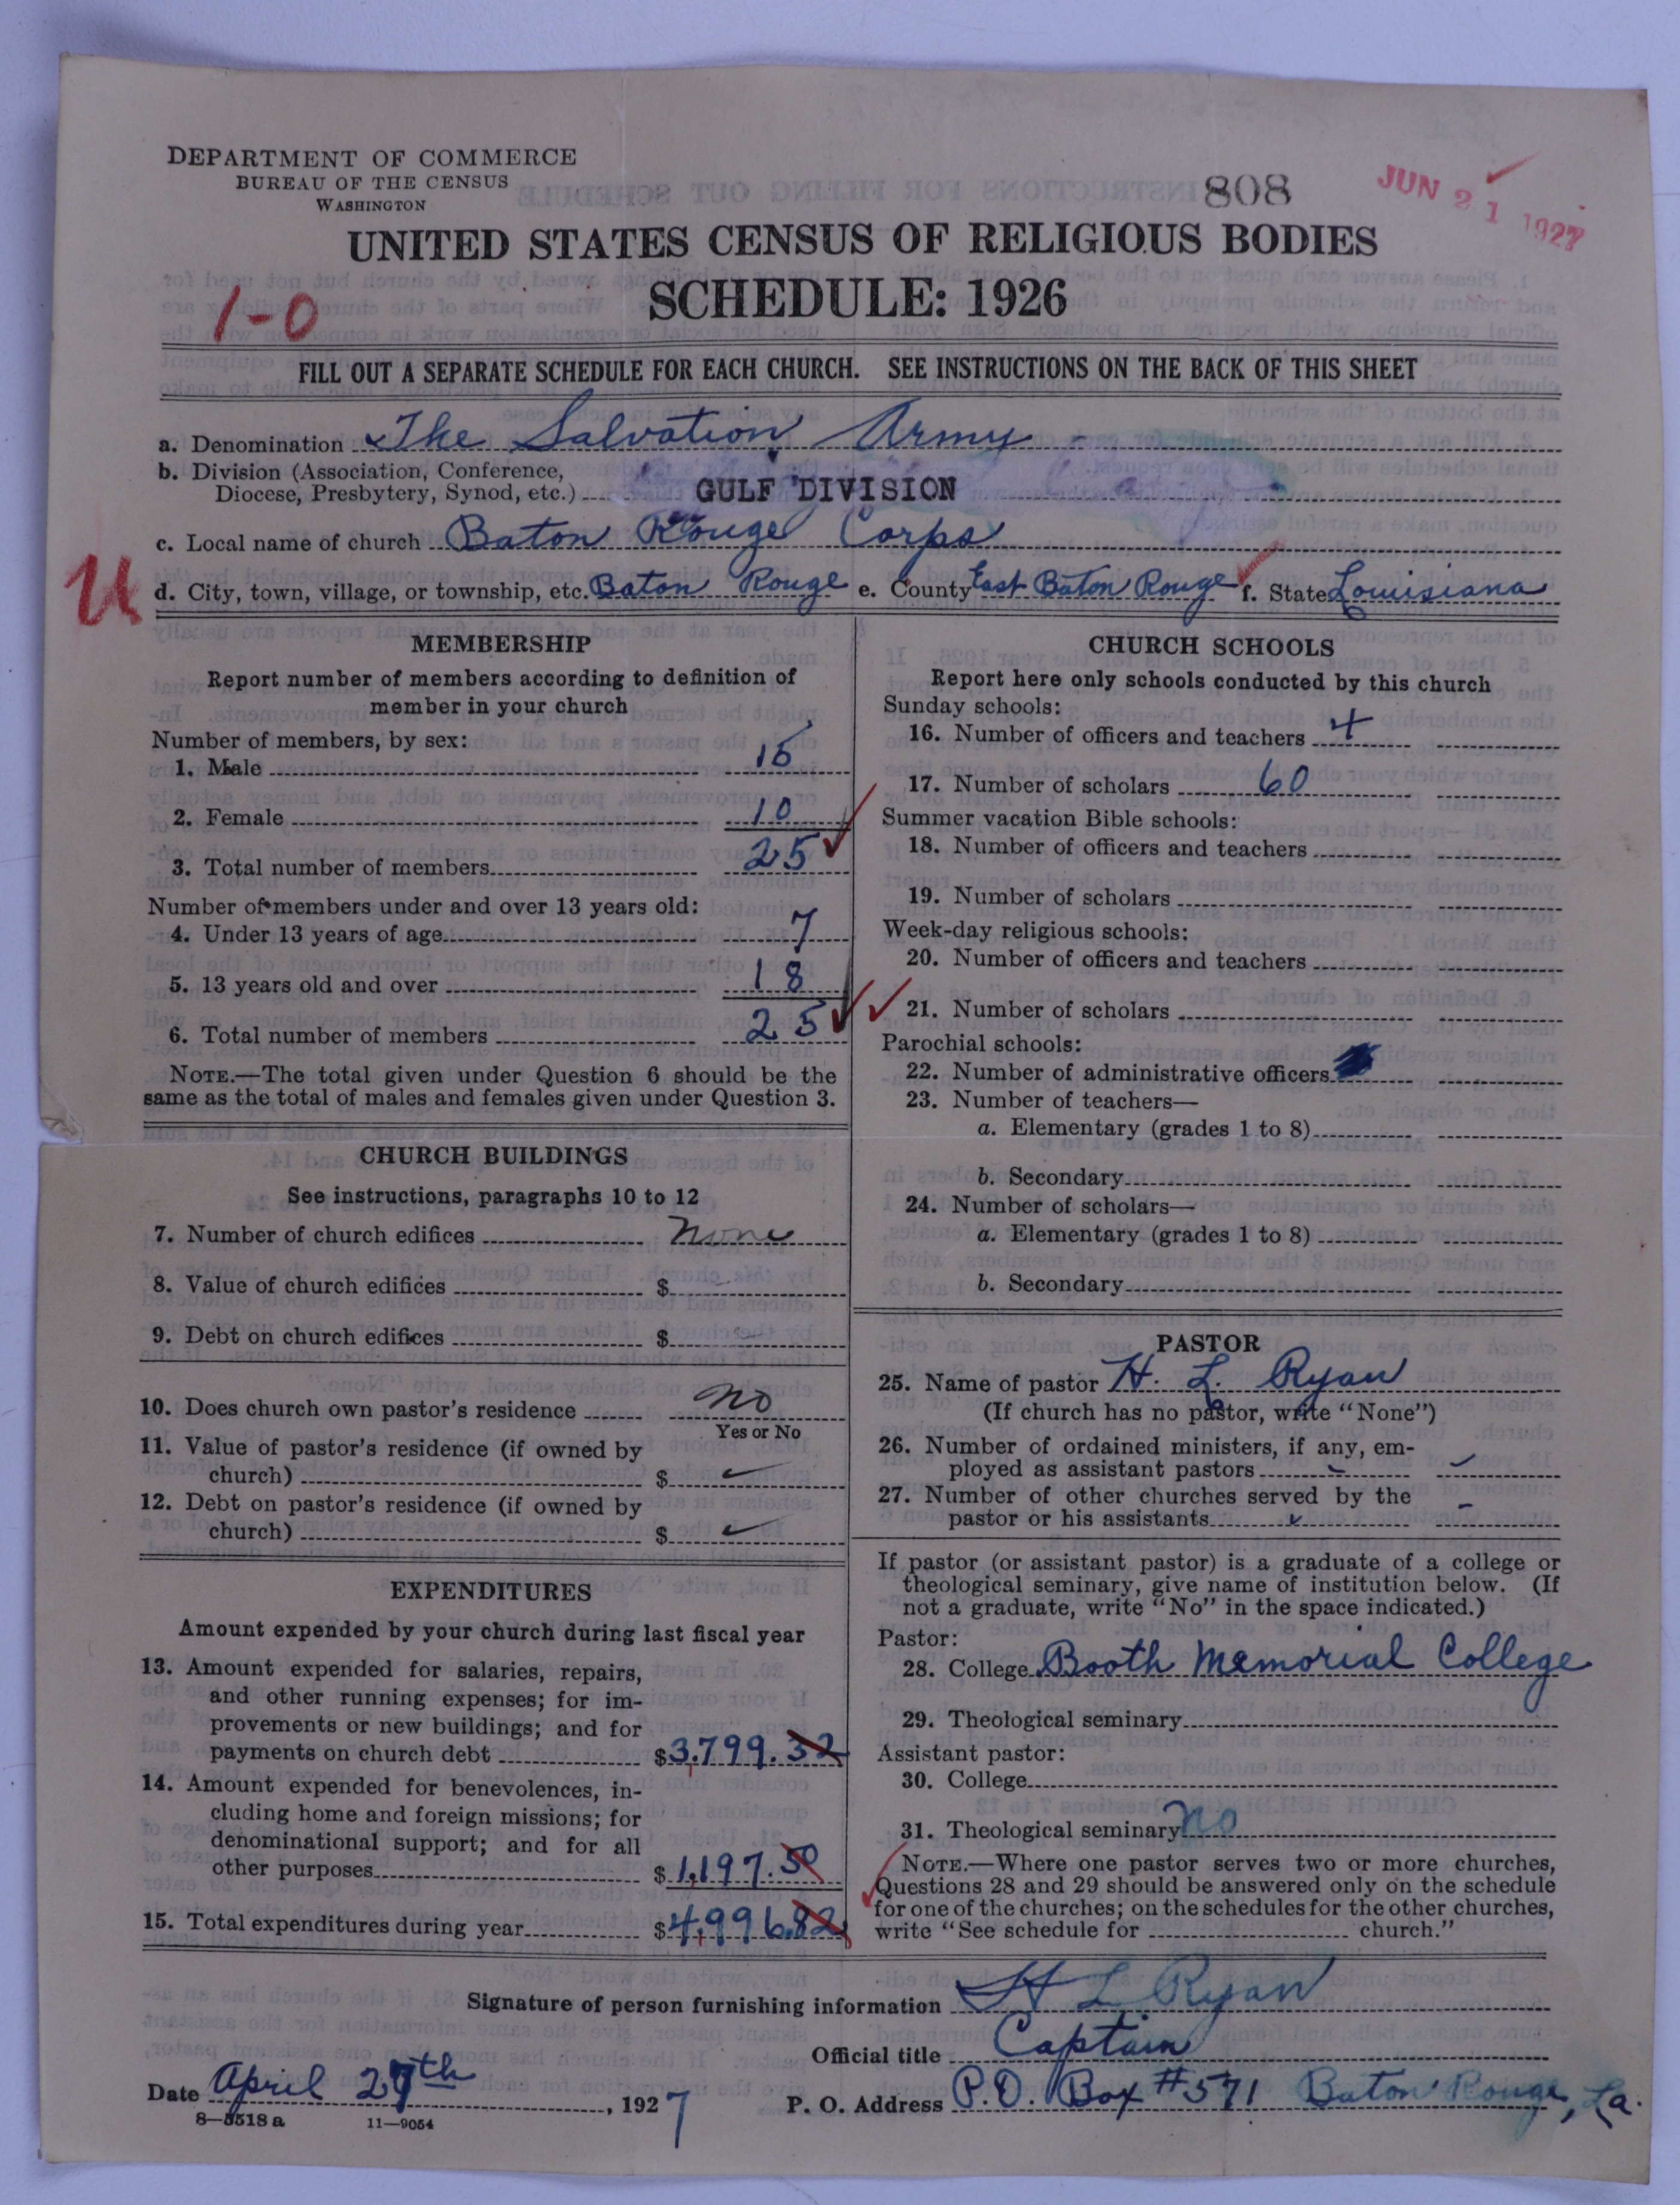 DEPARTMENT OF COMMERCE
BUREAU OF THE CENSUS
WASHINGTON
808
JUN 21 1927
UNITED STATES CENSUS OF RELIGIOUS BODIES
SCHEDULE: 1926
1-0
FILL OUT A SEPARATE SCHEDULE FOR EACH CHURCH. SEE INSTRUCTIONS ON THE BACK OF THIS SHEET
a. Denomination The Salvation Army
b. Division (Association, Conference,
Diocese, Presbytery, Synod, etc.) GULF DIVISION
c. Local name of church Baton Rouge Corps
U
d. City, town, village, or township, etc. Baton Rouge e. County East Baton Rouge f. State Louisiana
MEMBERSHIP
Report number of members according to definition of
member in your church
Number of members, by sex:
1. Male 15
2. Female 10
3. Total number of members 25
Number of members under and over 13 years old:
4. Under 13 years of age 7
5. 13 years old and over 18
6. Total number of members 25
NOTE.—The total given under Question 6 should be the
same as the total of males and females given under Question 3.
CHURCH BUILDINGS
See instructions, paragraphs 10 to 12
7. Number of church edifices None
8. Value of church edifices $
9. Debt on church edifices $
10. Does church own pastor's residence No
Yes or No
11. Value of pastor's residence (if owned by
church) $
12. Debt on pastor's residence (if owned by
church) $
EXPENDITURES
Amount expended by your church during last fiscal year
13. Amount expended for salaries, repairs,
and other running expenses; for im-
provements or new buildings; and for
payments on church debt $3,799.32
14. Amount expended for benevolences, in-
cluding home and foreign missions; for
denominational support; and for all
other purposes $1,197.50
15. Total expenditures during year $4,996.82
CHURCH SCHOOLS
Report here only schools conducted by this church
Sunday schools:
16. Number of officers and teachers 4
17. Number of scholars 60
Summer vacation Bible schools:
18. Number of officers and teachers
19. Number of scholars
Week-day religious schools:
20. Number of officers and teachers
21. Number of scholars
Parochial schools:
22. Number of administrative officers
23. Number of teachers—
a. Elementary (grades 1 to 8)
b. Secondary
24. Number of scholars—
a. Elementary (grades 1 to 8)
b. Secondary
PASTOR
25. Name of pastor H. L. Ryan
(If church has no pastor, write "None")
26. Number of ordained ministers, if any, em-
ployed as assistant pastors -
27. Number of other churches served by the
pastor or his assistants -
If pastor (or assistant pastor) is a graduate of a college or
theological seminary, give name of institution below. (If
not a graduate, write "No" in the space indicated.)
Pastor:
28. College Booth Memorial College
29. Theological seminary
Assistant pastor:
30. College
31. Theological seminary No
NOTE.—Where one pastor serves two or more churches,
Questions 28 and 29 should be answered only on the schedule
for one of the churches; on the schedules for the other churches,
write "See schedule for church."
Signature of person furnishing information H L Ryan
Official title Captain
Date April 27th, 1927 P. O. Address P.O. Box #571 Baton Rouge, La.
8-5518 a 11-9054